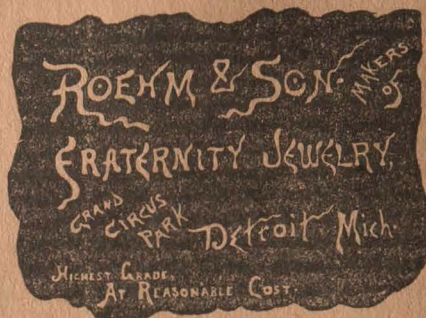 ROEHM & SON. MAKERS of
FRATERNITY JEWELRY,
GRAND CIRCUS PARK
Detroit Mich.
HIGHEST GRADE,
AT REASONABLE COST.